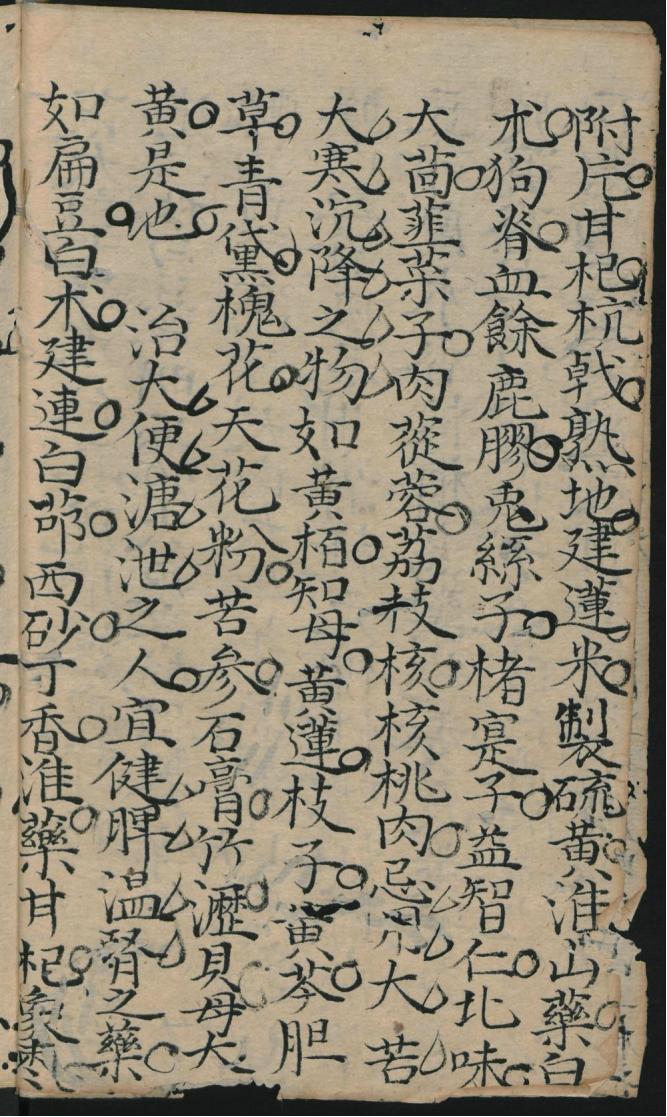 附片甘杞杭戟熟地建蓮米製硫黃淮山藥白
朮狗脊血餘鹿膠兎絲子楮寔子益智仁北味
大茴韮菜子肉蓯蓉荔枝核核桃肉忌用大苦
大寒沉降之物如黃栢知母黃蓮枝子黃芩胆
草青黛槐花天花粉苦參石膏竹瀝貝母大
黃是也 治大便溏泄之人宜健脾溫腎之藥
如扁豆白术建連白茆西砂丁香淮藥甘杞